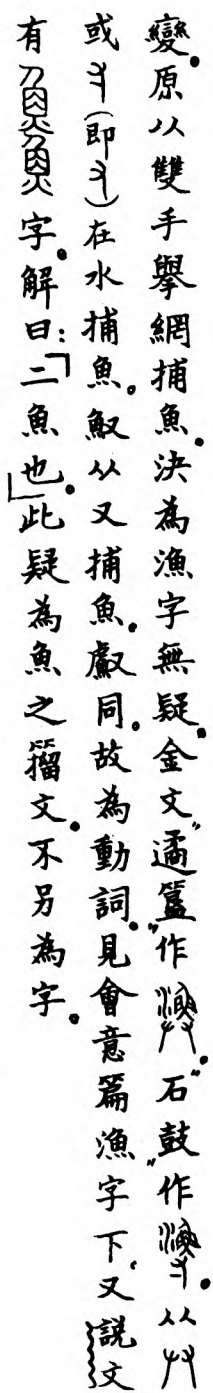 變。原从雙手舉網捕魚。決為漁字無疑。金文"遹簋"作。"石鼓"作。从
或(即)在水捕魚。䰻从又捕魚。㱃同。故為動詞。見會意篇漁字下。又說文
有字。解曰:「二魚也。」此疑為魚之籀文。不另為字。